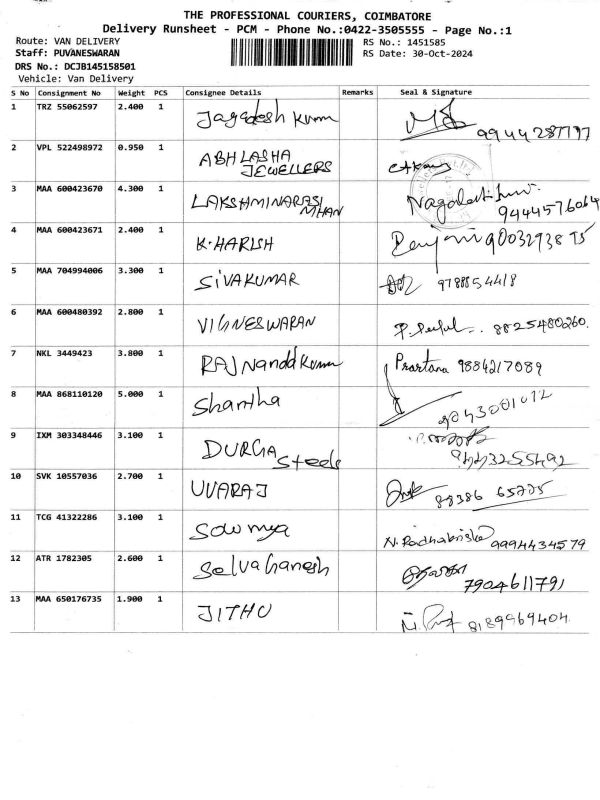 THE PROFESSIONAL COURIERS, COIMBATORE
Delivery Runsheet - PCM - Phone No.:0422-3505555 - Page No.:1
Route: VAN DELIVERY
RS No.: 1451585
Staff: PUVANESWARAN
RS Date: 30-Oct-2024
DRS No.: DCJB145158501
Vehicle: Van Delivery
S No Consignment No Weight PCS Consignee Details Remarks Seal & Signature
1 TRZ 55062597 2.400 1 Jagadesh Kumar
2 VPL 522498972 0.950 1 ABHLASHA JEWELLERS
3 MAA 600423670 4.300 1 LAKSHMINARASIMHAN 9444576064
4 MAA 600423671 2.400 1 K·HARISH
5 MAA 704994006 3.300 1 SIVAKUMAR 9788854418
6 MAA 600480392 2.800 1 VIGNESWARAN 8825480260
7 NKL 3449423 3.800 1 RAJ Nanda Kumar Prartana 9884217089
8 MAA 868110120 5.000 1 Shantha
9 IXM 303348446 3.100 1 DURGA Steels
10 SVK 10557036 2.700 1 UVARAJ
11 TCG 41322286 3.100 1 Sowmya 9994434579
12 ATR 1782305 2.600 1 SelvaGanesh 7904611791
13 MAA 650176735 1.900 1 JITHU 8189969404